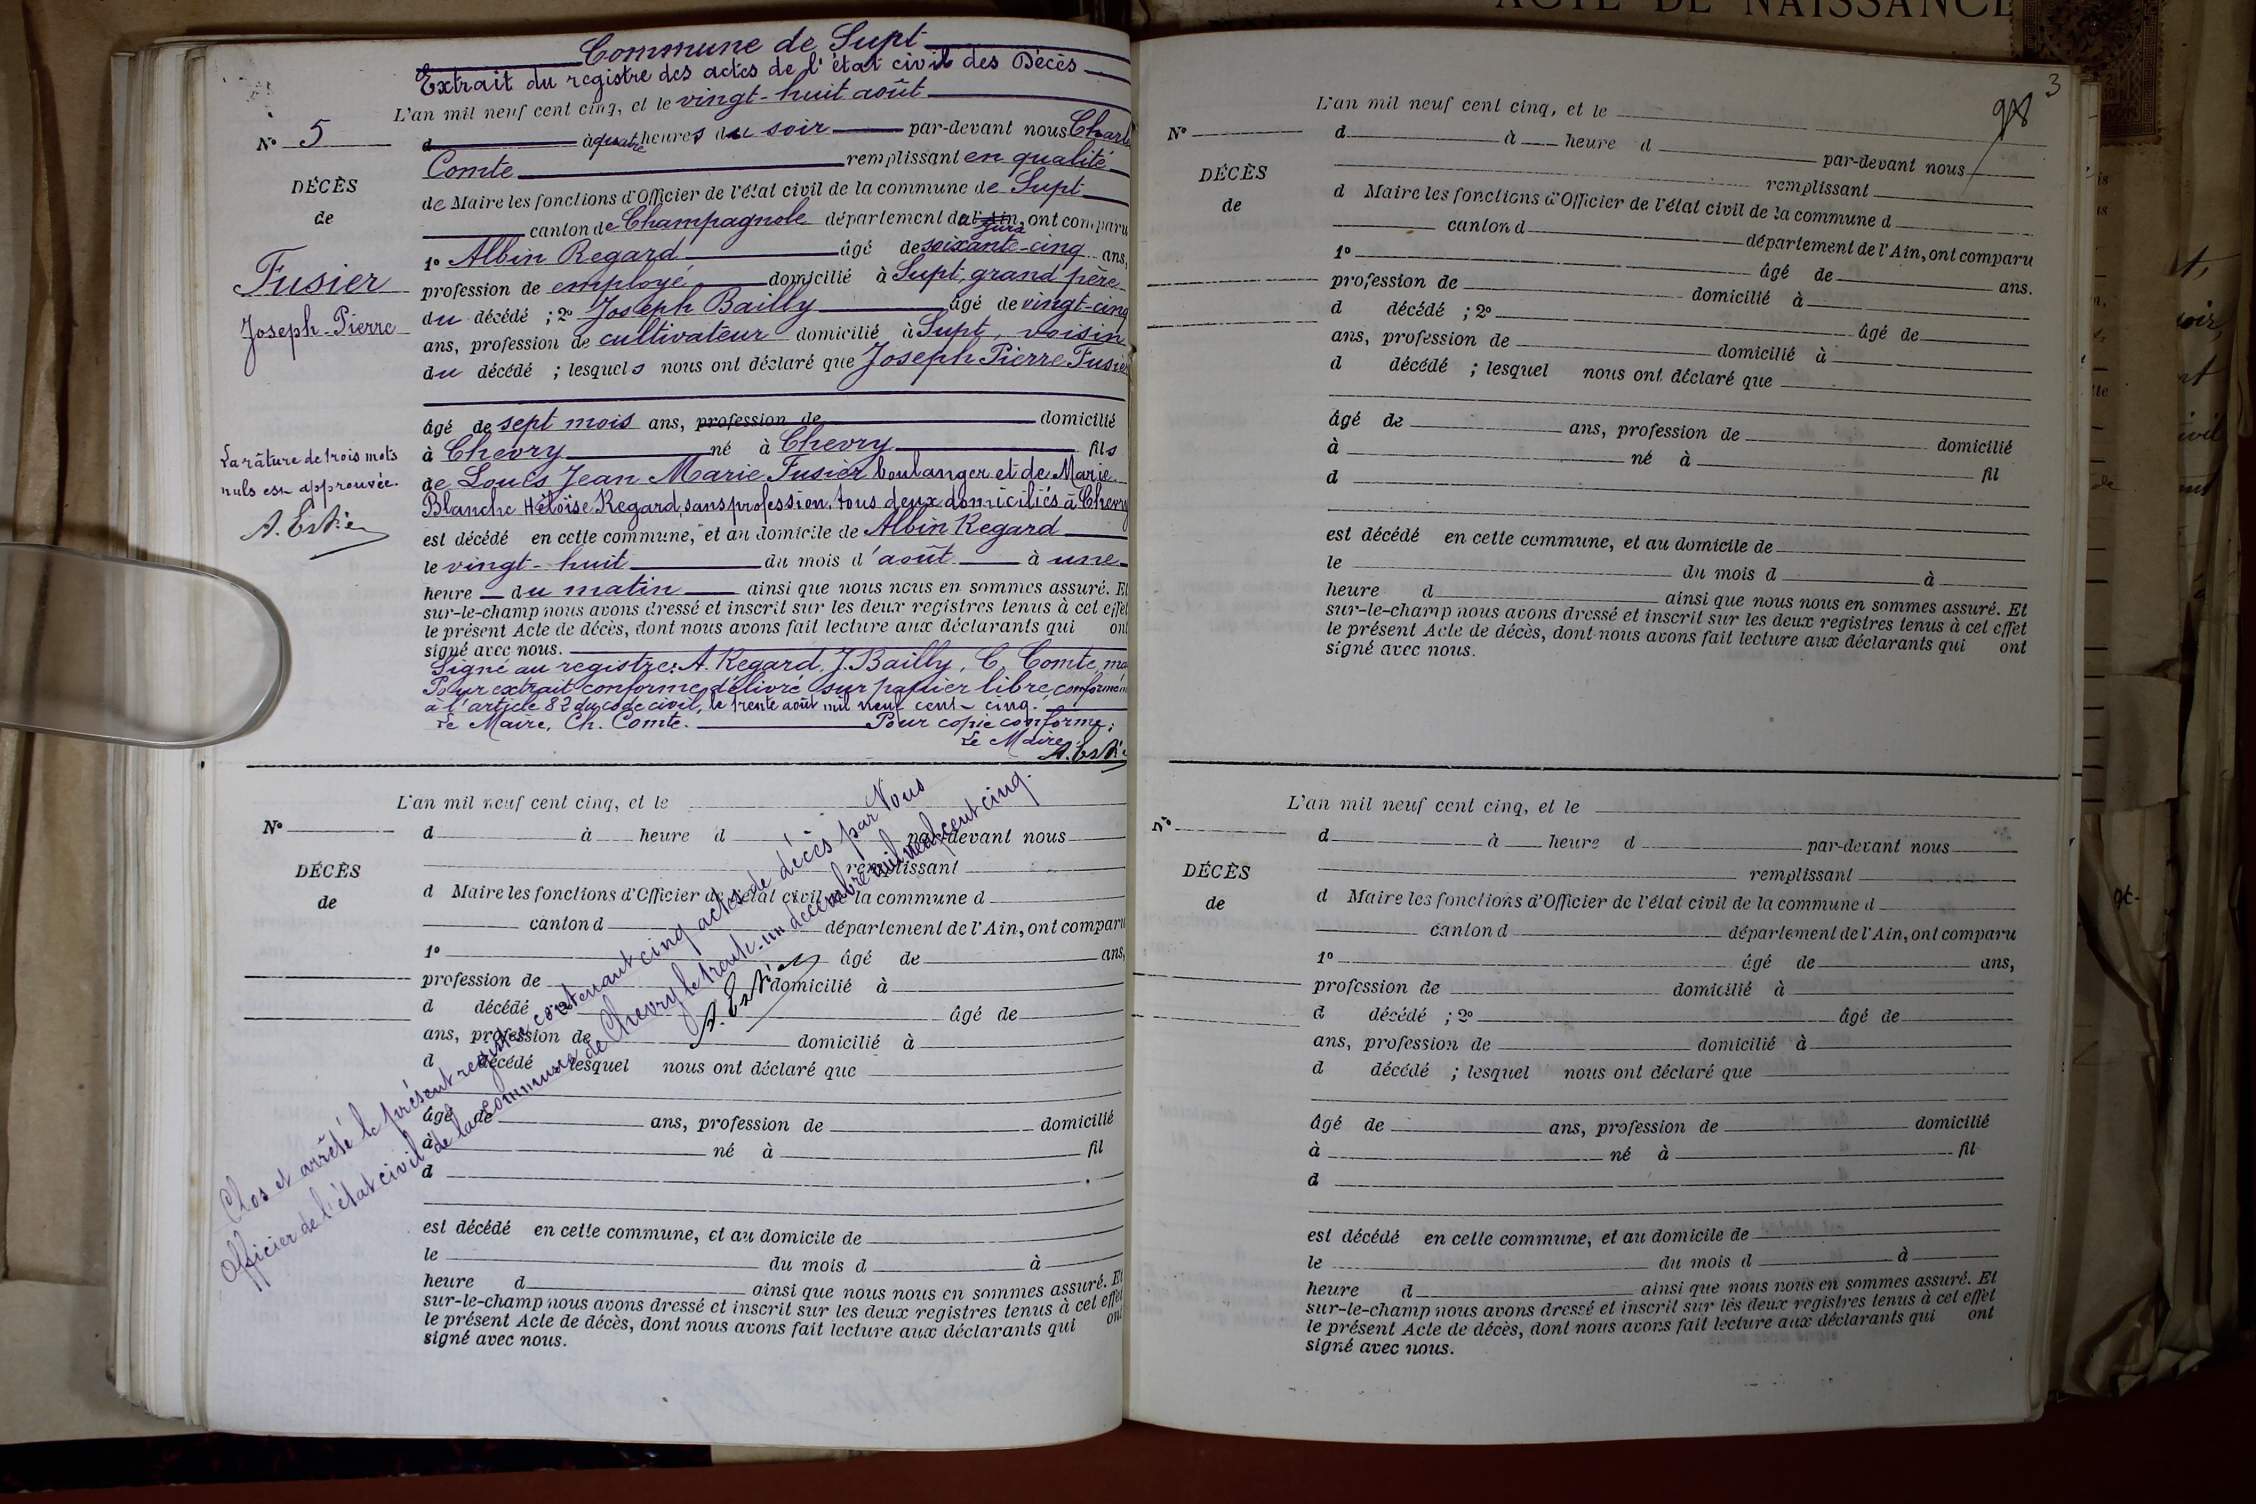 ACTE DE NAISSANCE
Commune de Supt
Extrait du registre des actes de l'état civil des Décès
L'an mil neuf cent cinq, et le vingt-huit août
N° 5
d à quatre heures du soir par-devant nous Charl
Comte remplissant en qualité
DÉCÈS
de Maire les fonctions d'Officier de l'état civil de la commune de Supt
de
canton de Champagnole département de l'Ain, ont comparu
Jura
1° Albin Regard âgé de soixante-cinq ans,
Fusier
profession de employé domicilié à Supt, grand père
du décédé ; 2° Joseph Bailly âgé de vingt-cinq
Joseph-Pierre
ans, profession de cultivateur domicilié à Supt, voisin
du décédé ; lesquels nous ont déclaré que Joseph Pierre Fusier
âgé de sept mois ans, profession de domicilié
à Chevry né à Chevry fils
La râture de trois mots
nuls est approuvée.
A. Estier
de Louis Jean Marie Fusier boulanger et de Marie
Blanche Héloïse Regard, sans profession, tous deux domiciliés à Chevry
est décédé en cette commune, et au domicile de Albin Regard
le vingt-huit du mois d'août à une
heure du matin ainsi que nous nous en sommes assuré. Et
sur-le-champ nous avons dressé et inscrit sur les deux registres tenus à cet effet
le présent Acte de décès, dont nous avons fait lecture aux déclarants qui ont
signé avec nous.
Signé au registre: A. Regard, J. Bailly, C. Comte, ma
Pour extrait conforme, délivré sur papier libre, conformém
à l'article 82 du code civil, le trente août mil neuf cent-cinq.
Le Maire, Ch. Comte. Pour copie conforme;
Le Maire,
A. Esti
L'an mil neuf cent cinq, et le
N°
d à heure d par-devant nous
remplissant
DÉCÈS
d Maire les fonctions d'Officier de l'état civil de la commune d
de
canton d département de l'Ain, ont comparu
1° âgé de ans,
profession de domicilié à
d décédé âgé de
ans, profession de domicilié à
d décédé lesquel nous ont déclaré que
âgé de ans, profession de domicilié
à né à fil
d
est décédé en cette commune, et au domicile de
le du mois d à
heure d ainsi que nous nous en sommes assuré. Et
sur-le-champ nous avons dressé et inscrit sur les deux registres tenus à cet effet
le présent Acte de décès, dont nous avons fait lecture aux déclarants qui ont
signé avec nous.
Clos et arrêté le présent registre contenant cinq actes de décès par Nous
Officier de l'état civil de la commune de Chevry le trente-un décembre mil neuf cent cinq.
A. Estier
3
98
L'an mil neuf cent cinq, et le
N°
d à heure d par-devant nous
remplissant
DÉCÈS
d Maire les fonctions d'Officier de l'état civil de la commune d
de
canton d département de l'Ain, ont comparu
1° âgé de ans.
profession de domicilié à
d décédé ; 2° âgé de
ans, profession de domicilié à
d décédé ; lesquel nous ont déclaré que
âgé de ans, profession de domicilié
à né à
d fil
est décédé en cette commune, et au domicile de
le du mois d à
heure d ainsi que nous nous en sommes assuré. Et
sur-le-champ nous avons dressé et inscrit sur les deux registres tenus à cet effet
le présent Acte de décès, dont nous avons fait lecture aux déclarants qui ont
signé avec nous.
L'an mil neuf cent cinq, et le
N°
d à heure d par-devant nous
remplissant
DÉCÈS
d Maire les fonctions d'Officier de l'état civil de la commune d
de
canton d département de l'Ain, ont comparu
1° âgé de ans,
profession de domicilié à
d décédé ; 2° âgé de
ans, profession de domicilié à
d décédé ; lesquel nous ont déclaré que
âgé de ans, profession de domicilié
à né à fil
d
est décédé en cette commune, et au domicile de
le du mois d à
heure d ainsi que nous nous en sommes assuré. Et
sur-le-champ nous avons dressé et inscrit sur les deux registres tenus à cet effet
le présent Acte de décès, dont nous avons fait lecture aux déclarants qui ont
signé avec nous.